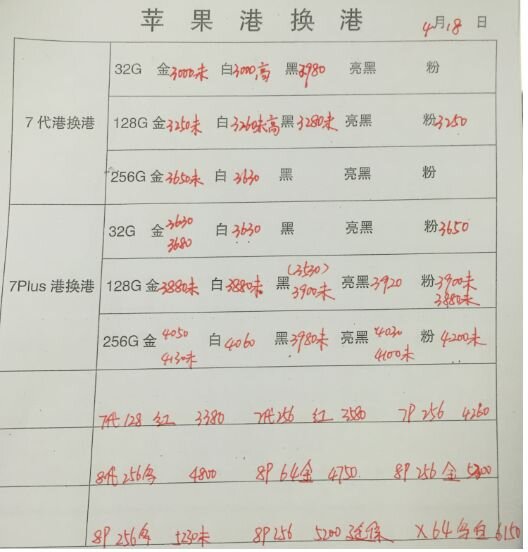 苹果港换港
4月18日
32G 金3000未 白3000高 黑2980 亮黑 粉
7代港换港 128G 金3250未 白3260未高 黑3280未 亮黑 粉3250
256G 金3650未 白3630 黑 亮黑 粉
32G 金3630 3680 白3630 黑 亮黑 粉3650
7Plus港换港 128G 金3880未 白3880未 黑(3530) 3900未 亮黑3920 粉3900未 3880未
256G 金4050 4130未 白4060 黑3980未 亮黑4030 4100未 粉4200未
7代128 红 3380 7代256 红 3580 7P 256 4260
8代256 4800 8P 64金 4750 8P 256金
8P 256 5230未 8P 256 5200 X 64 6150